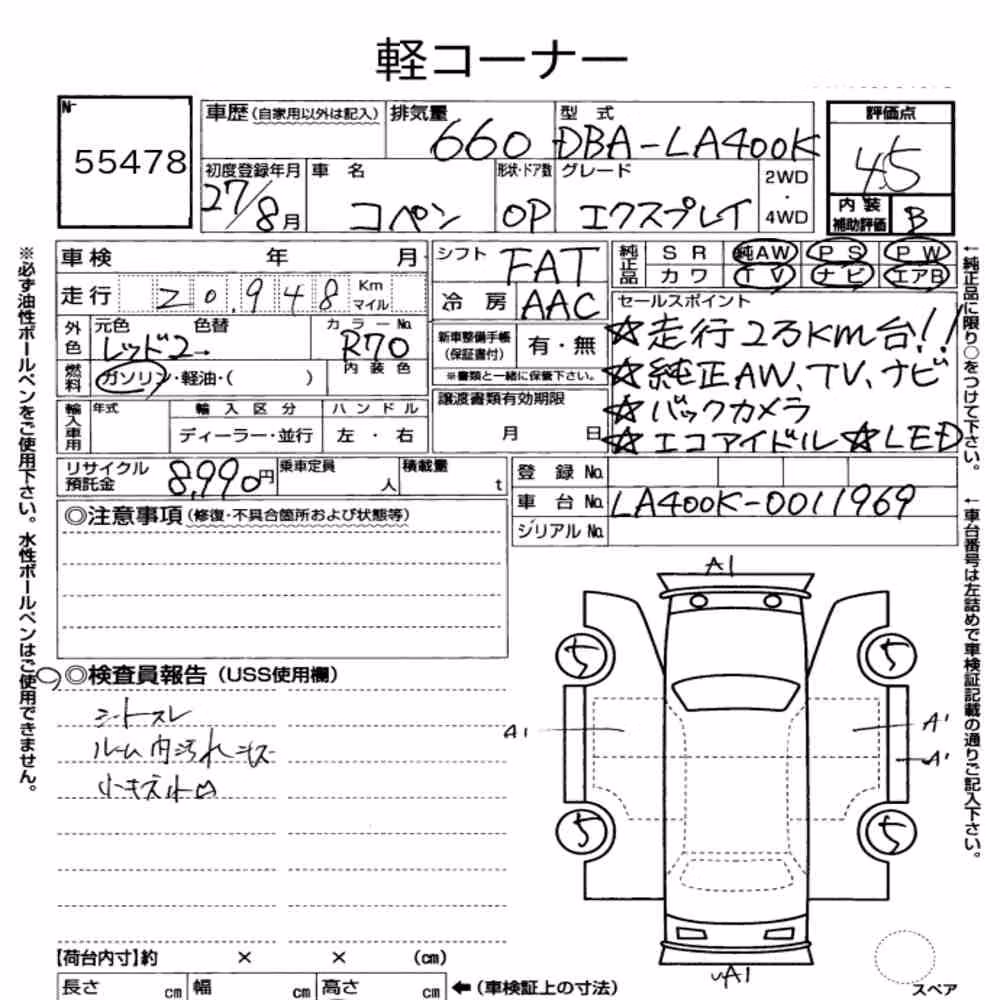 軽コーナー
No 55478
車歴(自家用以外は記入) 排気量 660 型式 DBA-LA400K 評価点 4.5
初度登録年月 27/8月 車名 コペン 形状・ドア数 OP グレード エクスプレイ 2WD・4WD
内装補助評価 B
車検 年 月 シフト FAT 純正品 SR 純AW PS PW
走行 20,948 Km マイル 冷房 AAC カワ TV ナビ エアB
外色 元色 レッド2 色替 カラーNo. R70 新車整備手帳(保証書付) 有・無
燃料 ガソリン・軽油・( ) 内装色 ※書類と一緒に保管下さい。
セールスポイント
☆走行2万KM台!!
☆純正AW、TV、ナビ
☆バックカメラ
☆エコアイドル☆LED
輸入車用 年式 輸入区分 ディーラー・並行 ハンドル 左・右 譲渡書類有効期限 月 日
リサイクル預託金 8,990円 乗車定員 人 積載量 t 登録No.
車台No. LA400K-0011969
シリアルNo.
◎注意事項(修復・不具合箇所および状態等)
◎検査員報告(USS使用欄)
シートスレ
ルーム内汚れ
小キズ凹
A1
5 5
A1 A1
A1
5 5
A1
【荷台内寸】約 × × (cm)
長さ cm 幅 cm 高さ cm ←(車検証上の寸法)
スペア
※必ず油性ボールペンをご使用下さい。水性ボールペンはご使用できません。
←純正品に限り○をつけて下さい。
←車台番号は左詰めで車検証記載の通りご記入下さい。